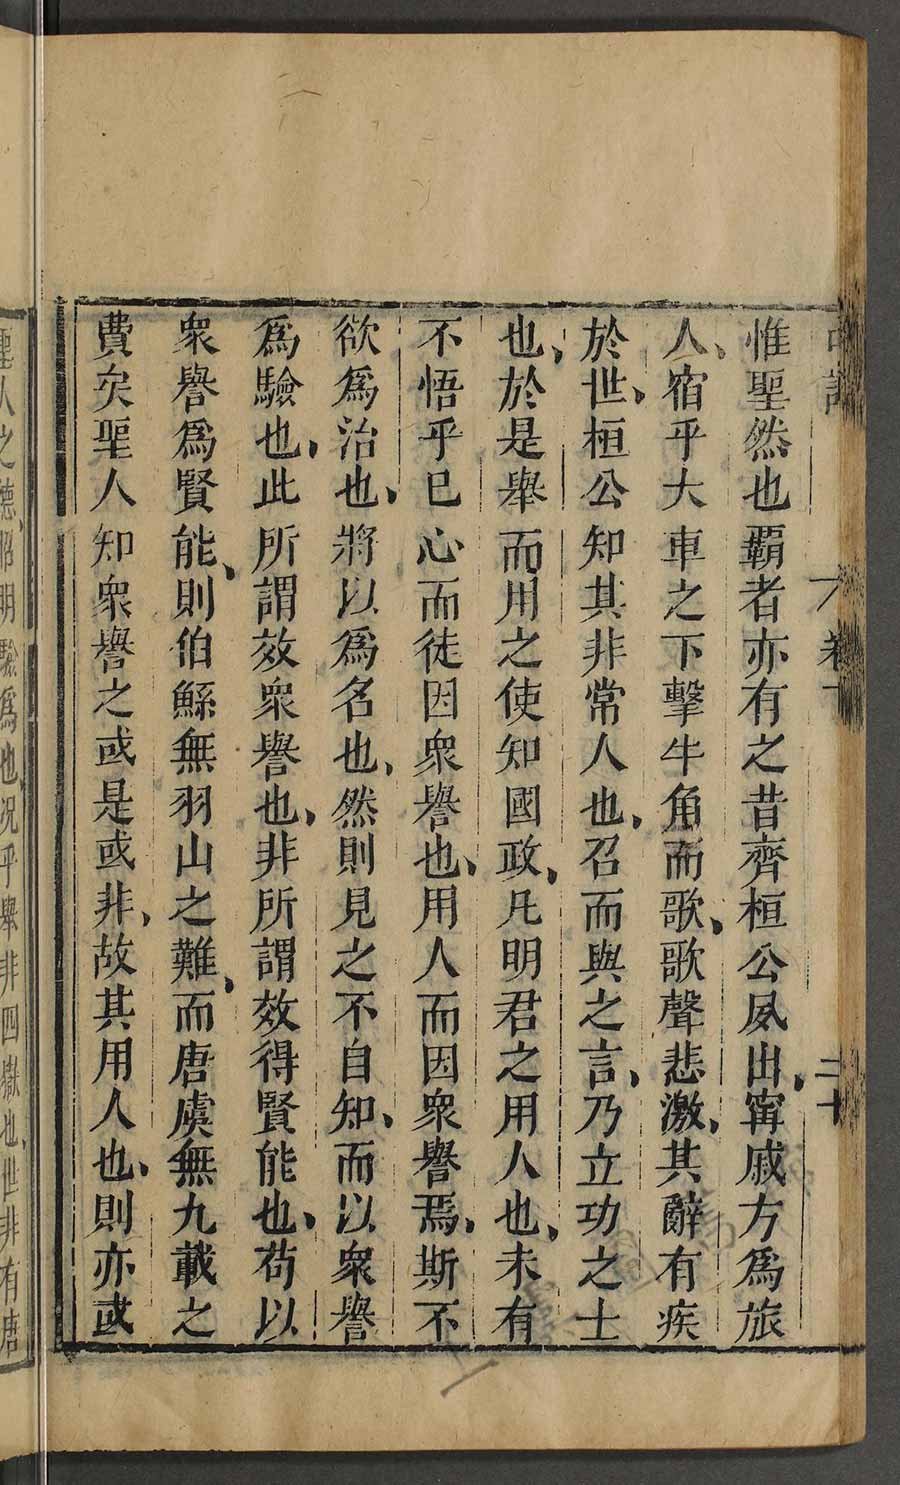 惟聖然也覇者亦有之昔齊桓公夙出、甯戚方爲旅
人、宿乎大車之下擊牛角而歌、歌聲悲激、其辭有疾
於世、桓公知其非常人也、召而與之言、乃立功之士
也、於是舉而用之使知國政、凡明君之用人也、未有
不悟乎巳心而徒因衆譽也、用人而因衆譽焉、斯不
欲爲治也、將以爲名也、然則見之不自知、而以衆譽
爲驗也、此所謂效衆譽也、非所謂效得賢能也、苟以
衆譽爲賢能、則伯鯀無羽山之難、而唐虞無九載之
費矣聖人知衆譽之或是或非、故其用人也、則亦或
聖人之德、昭明驗爲也、況乎舉非四嶽也、世非有唐